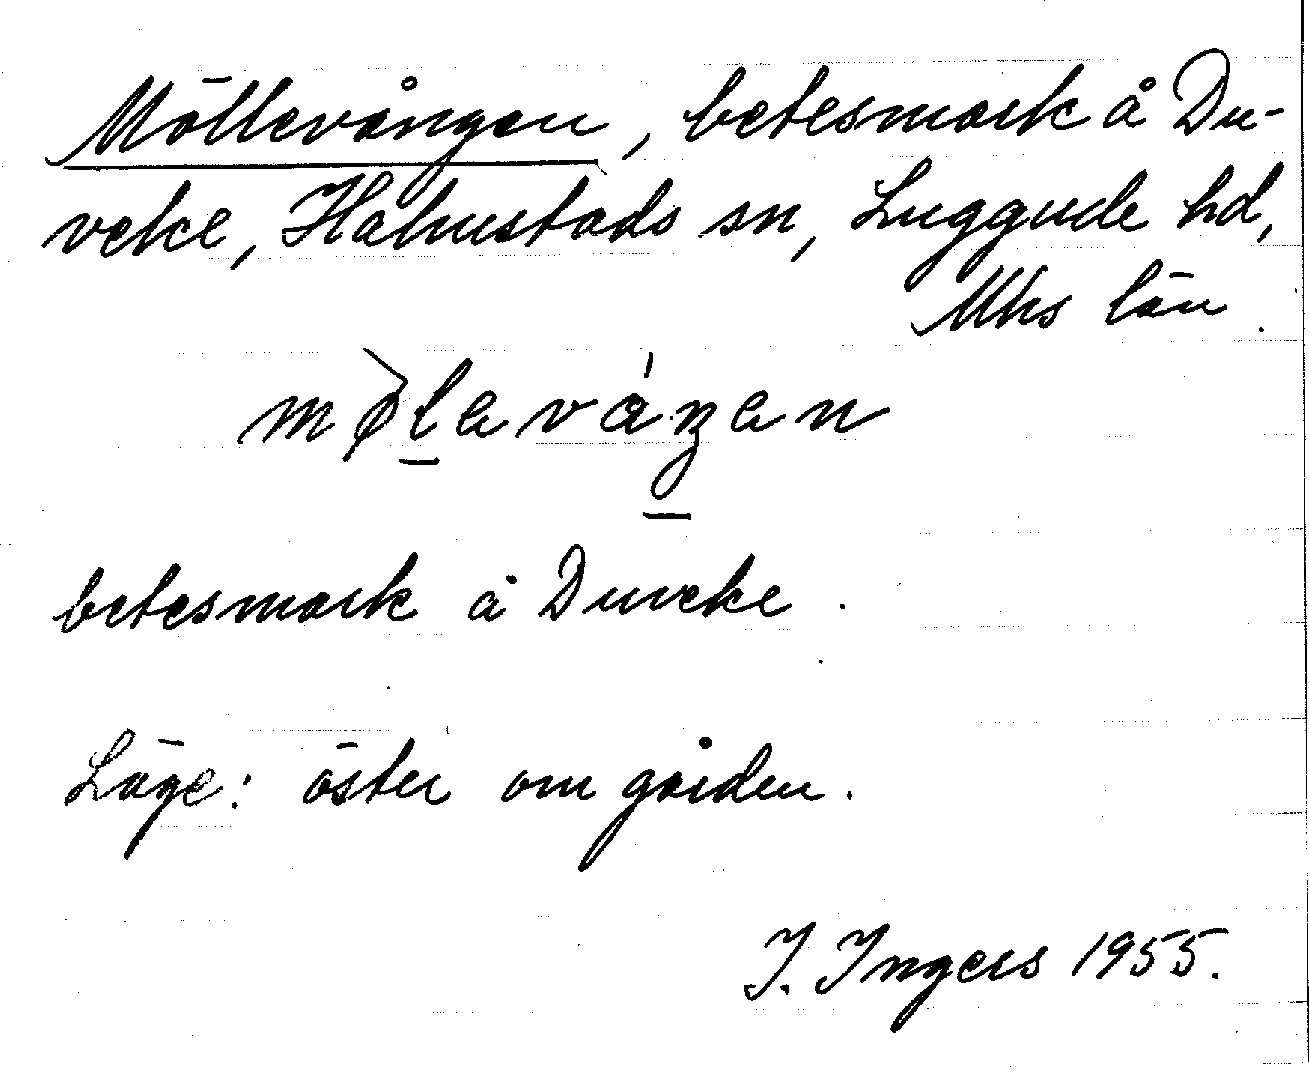 Möllevången, betesmark å Du-
veke, Halmstads sn, Luggude hd,
Mhs län.
mø̀lavåŋan
betesmark å Duveke.
Läge: öster om gården.
I. Ingers 1955.